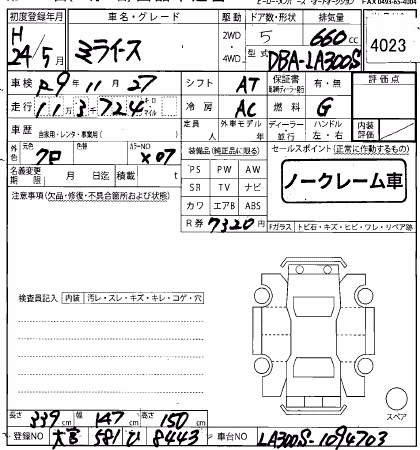 初度登録年月 車名・グレード 駆動 ドア数・形状 排気量
H 24/5月 ミライース 2WD 4WD 5 660cc 4023
型式 DBA-LA300S
車検 R9年11月27 シフト AT 保証書 有・無 評価点
走行 11万3千724 キロ マイル 冷房 AC 燃料 G
定員 人 外車モデル 年 ディーラー 並行 ハンドル 左・右 内装評価
車歴 自家用・レンタ・事業用( )
外色 元色 クロ 色替 カラーNO X07
装備品(純正品に限る) セールスポイント(正常に作動するもの)
名義変更期限 月 日迄 積載 t
PS PW AW
SR TV ナビ
カワ エアB ABS
ノークレーム車
注意事項(欠品・修復・不具合箇所および状態)
R券 7320円 Fガラス トビ石・キズ・ヒビ・ワレ・リペア跡
検査員記入 内装 汚レ・スレ・キズ・キレ・コゲ・穴
スペア
長さ 339cm 幅 147cm 高さ 150cm
登録NO 大宮 581 ひ 8443 車台NO LA300S-1094703